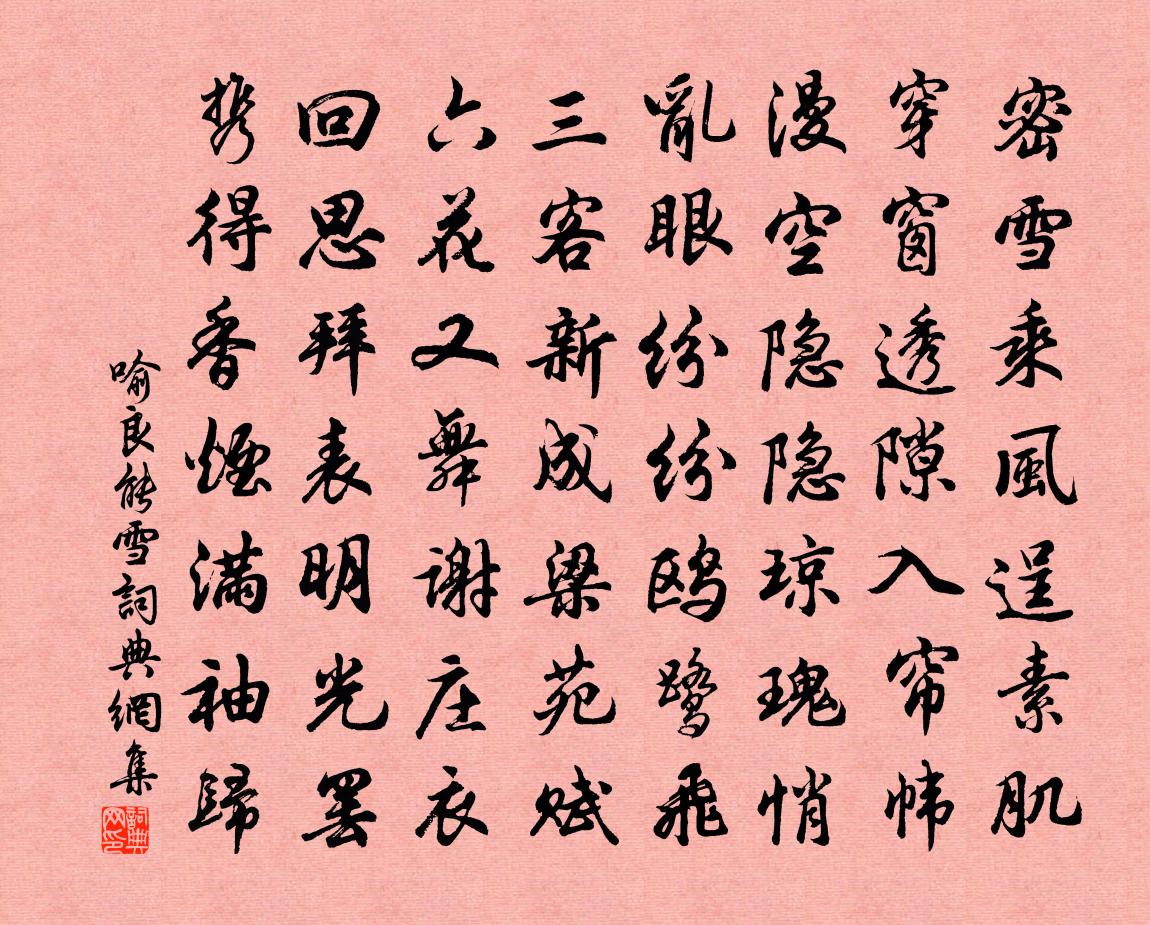 密雪乘風逞素肌
穿窗透隙入帘帏
漫空隐隐琼瑰悄
亂眼纷纷鸥鹭飛
三客新成梁苑赋
六花又舞谢庄衣
回思拜表明光罢
携得香煙满袖歸
喻良能雪詞典網集
詞典网印